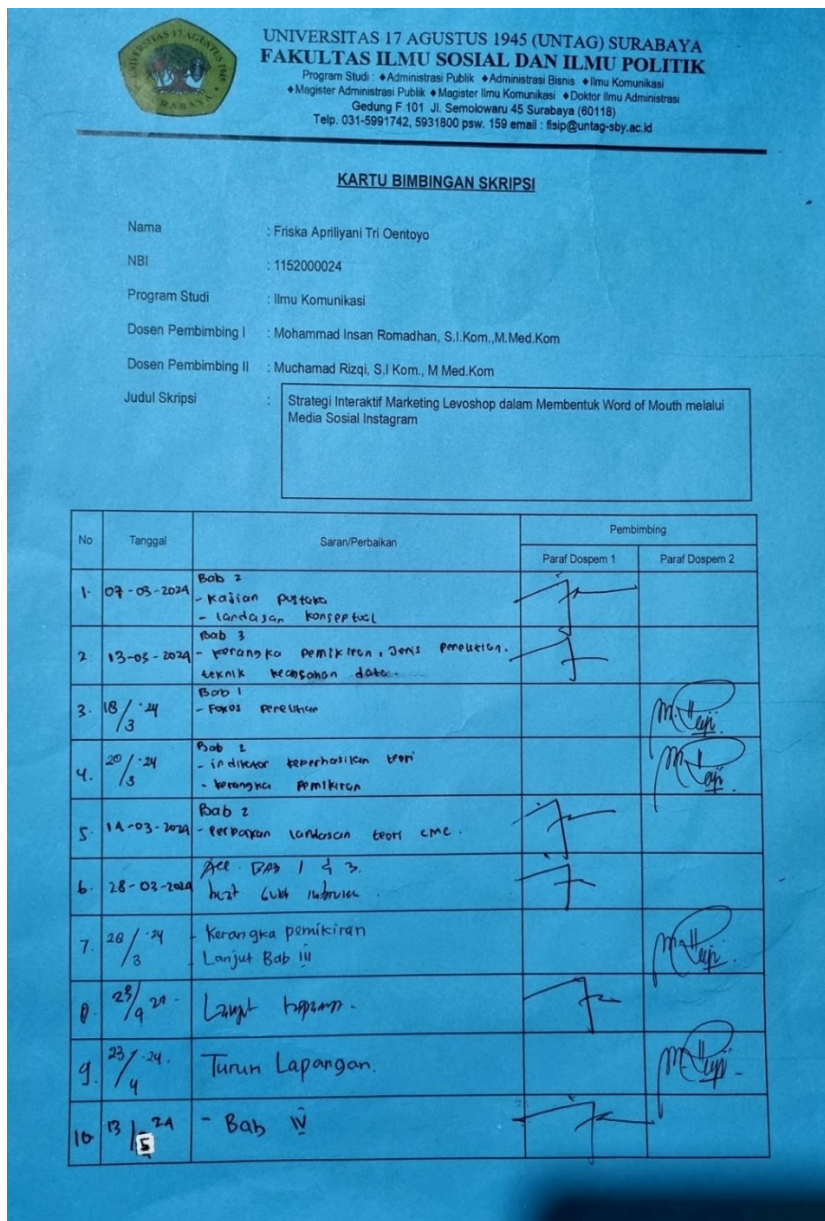 UNIVERSITAS 17 AGUSTUS 1945 (UNTAG) SURABAYA
FAKULTAS ILMU SOSIAL DAN ILMU POLITIK
Program Studi : ♦Administrasi Publik ♦Administrasi Bisnis ♦Ilmu Komunikasi
♦Magister Administrasi Publik ♦Magister Ilmu Komunikasi ♦Doktor Ilmu Administrasi
Gedung F 101 Jl. Semolowaru 45 Surabaya (60118)
Telp. 031-5991742, 5931800 psw. 159 email : fisip@untag-sby.ac.id
KARTU BIMBINGAN SKRIPSI
Nama : Friska Apriliyani Tri Oentoyo
NBI : 1152000024
Program Studi : Ilmu Komunikasi
Dosen Pembimbing I : Mohammad Insan Romadhan, S.I.Kom.,M.Med.Kom
Dosen Pembimbing II : Muchamad Rizqi, S.I Kom., M Med.Kom
Judul Skripsi : Strategi Interaktif Marketing Levoshop dalam Membentuk Word of Mouth melalui
Media Sosial Instagram
No Tanggal Saran/Perbaikan Pembimbing
Paraf Dospem 1 Paraf Dospem 2
Bab 2
1. 07-03-2024 - Kajian pustaka
- landasan konseptual
Bab 3
2. 13-03-2024 - kerangka pemikiran, Jenis penelitian.
teknik keabsahan data
Bab 1
3. 18/3 -24 - Fokus Penelitian
Bab 2
4. 20/3 -24 - indikator keberhasilan teori
- kerangka pemikiran
Bab 2
5. 14-03-2024 - Perbaikan landasan teori CMC.
6. 28-03-2024 Acc. BAB 1 & 3.
buat
7. 28/3 -24 - Kerangka pemikiran
- Lanjut Bab III
8. 23/4 24 - Lanjut
9. 23/4 -24. Turun Lapangan.
10 13/5 -24 - Bab IV